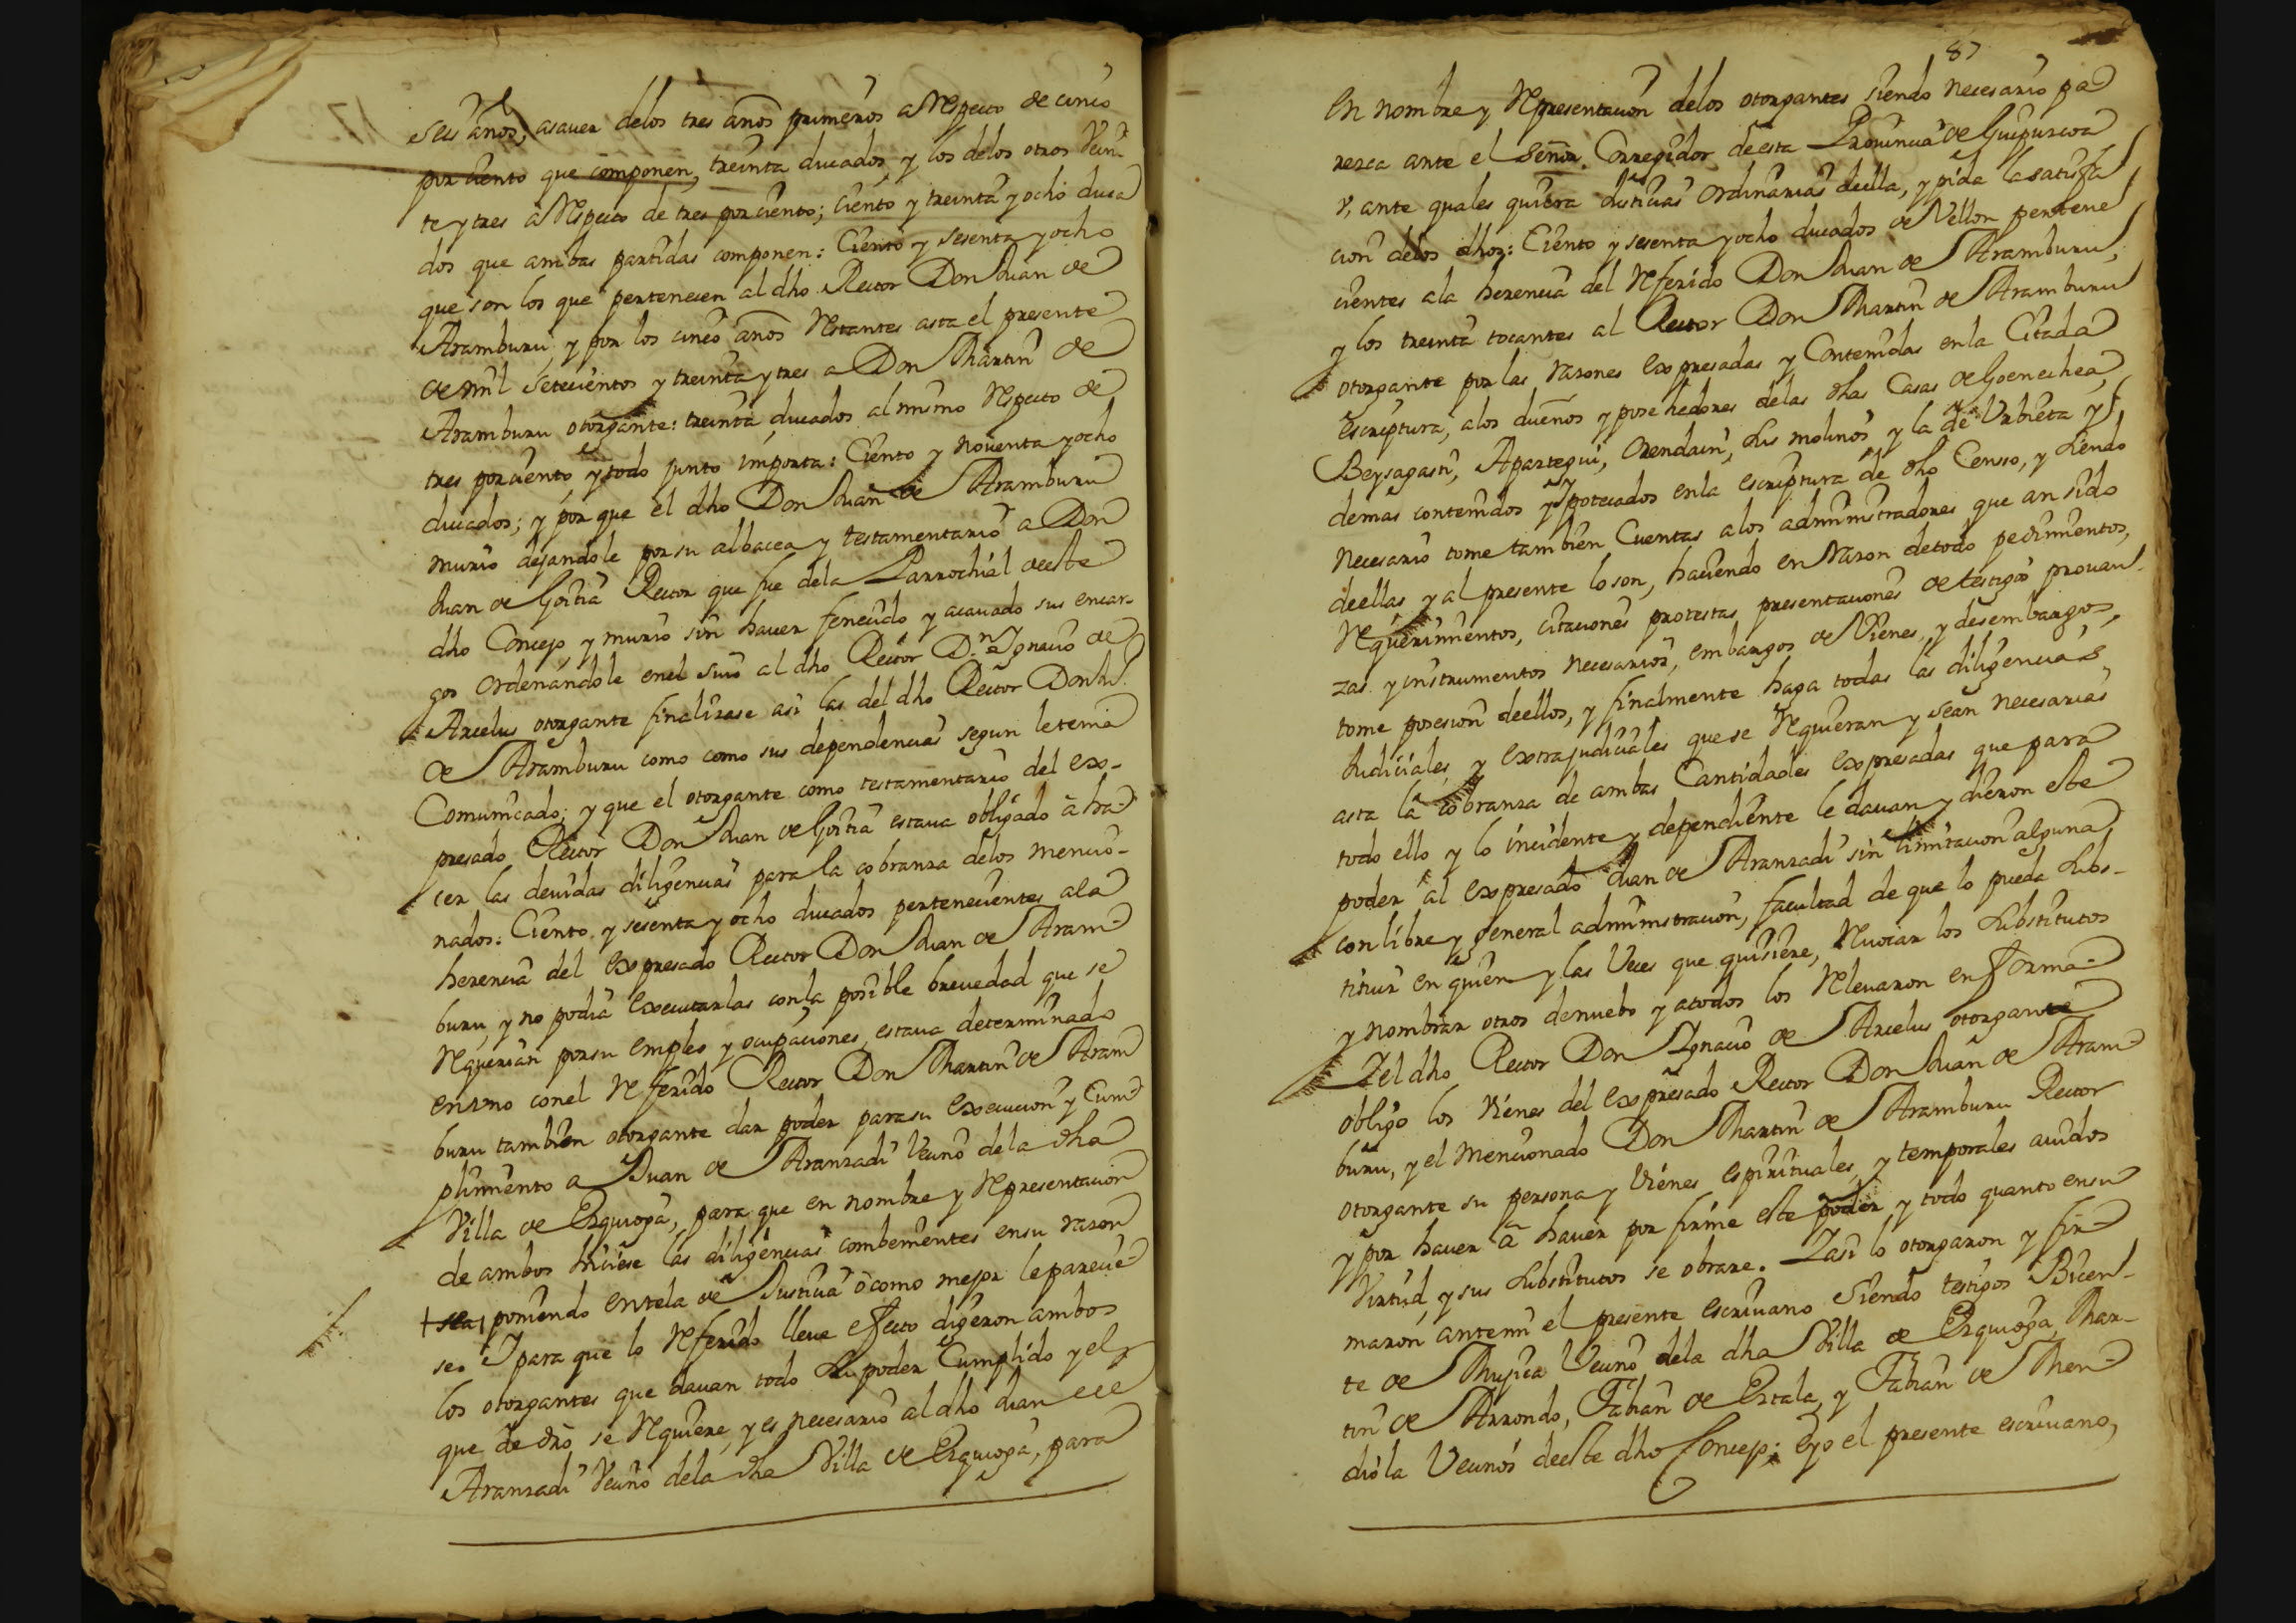 seis años, asauer delos tres años primeros a Respecto de cinco
por ciento que componen, treinta ducados, y los delos otros Vein-
te y tres à Respecto de tres por ciento; ciento y treinta y ocho duca
dos que ambas partidas componen: Ciento y sesenta y ocho
que son los que pertenecen al dho Rector Don Juan de
Aramburu, y por los cinco años Restantes asta el presente
de mil setecientos y treinta y tres a Don Martin de
Aramburu otorgante: treinta ducados al mismo Respecto de
tres por ciento, y todo junto importa: Ciento y noventa y ocho
ducados; y por que el dho Don Juan de Aramburu
murio dejandole por su albacea y testamentario a Don
Juan de Goitia Rector que fue dela Parrochial deeste
dho Concejo y murio sin hauer fenecido y acauado sus encar-
gos ordenandole enel suio al dho Rector D.n Ignacio de
Arcelus otorgante finalizase asi las del dho Rector Don Ju.
de Aramburu como como sus dependencias segun letenia
Comunicado; y que el otorgante como testamentario del ex-
presado Rector Don Juan de Goitia estaua obligado à ha
cer las deuidas diligencias para la cobranza delos mencio-
nados: Ciento y sesenta y ocho ducados pertenecientes ala
herencia del expresado Rector Don Juan de Aram
buru y no podia executarlas conla posible breuedad que se
Requerian por su empleo y ocupaciones, estaua determinado
en uno conel Referido Rector Don Martin de Aram
buru tambien otorgante dar poder para su execucion y Cum
plimiento a Juan de Aranzadi Vecino dela dha
Villa de Ezquioga, para que en nombre y Representacion
de ambos hiciese las diligencias combenientes ensu razon
sea poniendo entela de Justicia ò como mejor le parecie
se. I para que lo Referido lleue efecto digeron ambos
los otorgantes que dauan todo su poder Cumplido y el
que de dro se Requiere, y es necesario al dho Juan de
Aranzadi Vecino dela dha Villa de Ezquioga, para
87
en nombre y Representacion delos otorgantes siendo necesario pa
rezca ante el Señor Corregidor deesta Prouincia de Guipuzcoa
v, ante quales quiera Justicias ordinarias deella, y pida la satisfa
cion delos dhos: Ciento y sesenta y ocho ducados de Vellon pertene
cientes ala herencia del Referido Don Juan de Aramburu,
y los treinta tocantes al Rector Don Martin de Aramburu
otorgante por las razones expresadas y Contenidas enla Citada
escriptura, alos dueños y posehedores delas dhas Casas de Goenechea,
Beysagasti, Apartegui, Orendain, sus molinos y la de Urbieta y
demas contenidos ypotecados enla escriptura de dho Censso, y siendo
necesario tome tambien Cuentas alos administradores que an sido
deellas y al presente lo son, haciendo en Razon detodo pedimientos,
Requerimientos, citaciones protestas presentaciones de testigos prouan-
zas y instrumentos necesarios, embargos de Vienes, y desembargos,
tome posesion deellos, y finalmente haga todas las diligencias
Judiciales y extrajudiciales que se Requieran y sean necesarias
asta la cobranza de ambas Cantidades expresadas que para
todo ello y lo incidente y dependiente le dauan y dieron este
poder al expresado Juan de Aranzadi sin limitacion alguna
con libre y general administracion, facultad de que lo pueda subs-
tituir en quien y las Veces que quisiere, Reuocar los substitutos
y nombrar otros denuebo y atodos los Releuaron en forma
I el dho Rector Don Ignacio de Arcelus otorgante
obligo los Vienes del expresado Rector Don Juan de Aram
buru, y el mencionado Don Martin de Aramburu Rector
otorgante su persona y Vienes espirituales, y temporales auidos
y por hauer à hauer por firme este poder y todo quanto ensu
Virtud y sus substitutos se obrare. I asi lo otorgaron y fir
maron antemi el presente escriuano siendo testigos Bicen-
te de Mujica Vecino dela dha Villa de Ezquioga, Mar-
tin de Arrondo, Fabian de Eztala, y Fabian de Men
diola Vecinos deeste dho Concejo; e yo el presente escriuano,